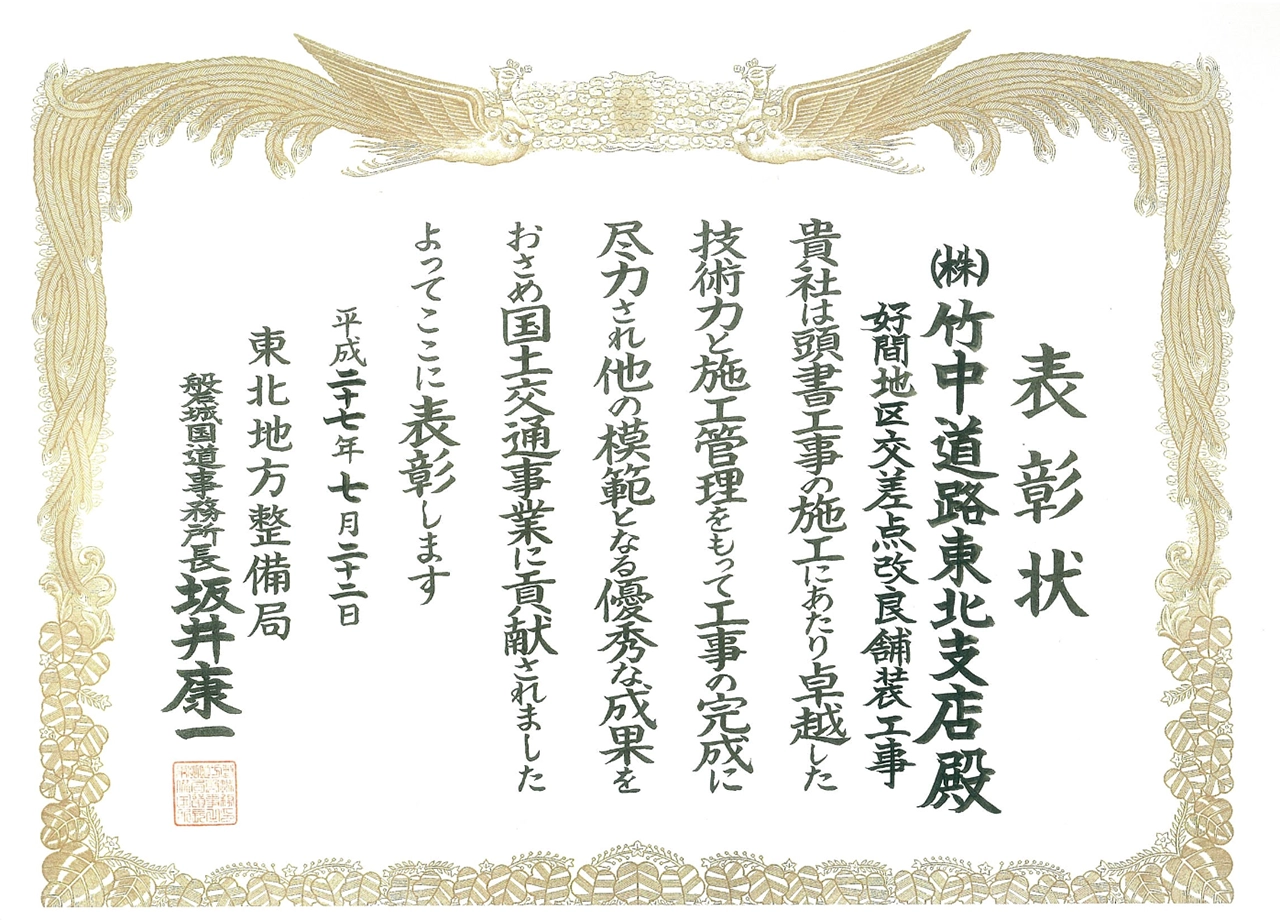 表彰状
(株)竹中道路東北支店殿
好間地区交差点改良舗装工事
貴社は頭書工事の施工にあたり卓越した
技術力と施工管理をもって工事の完成に
尽力され他の模範となる優秀な成果を
おさめ国土交通事業に貢献されました
よってここに表彰します
平成二十七年七月二十二日
東北地方整備局
磐城国道事務所長 坂井康一